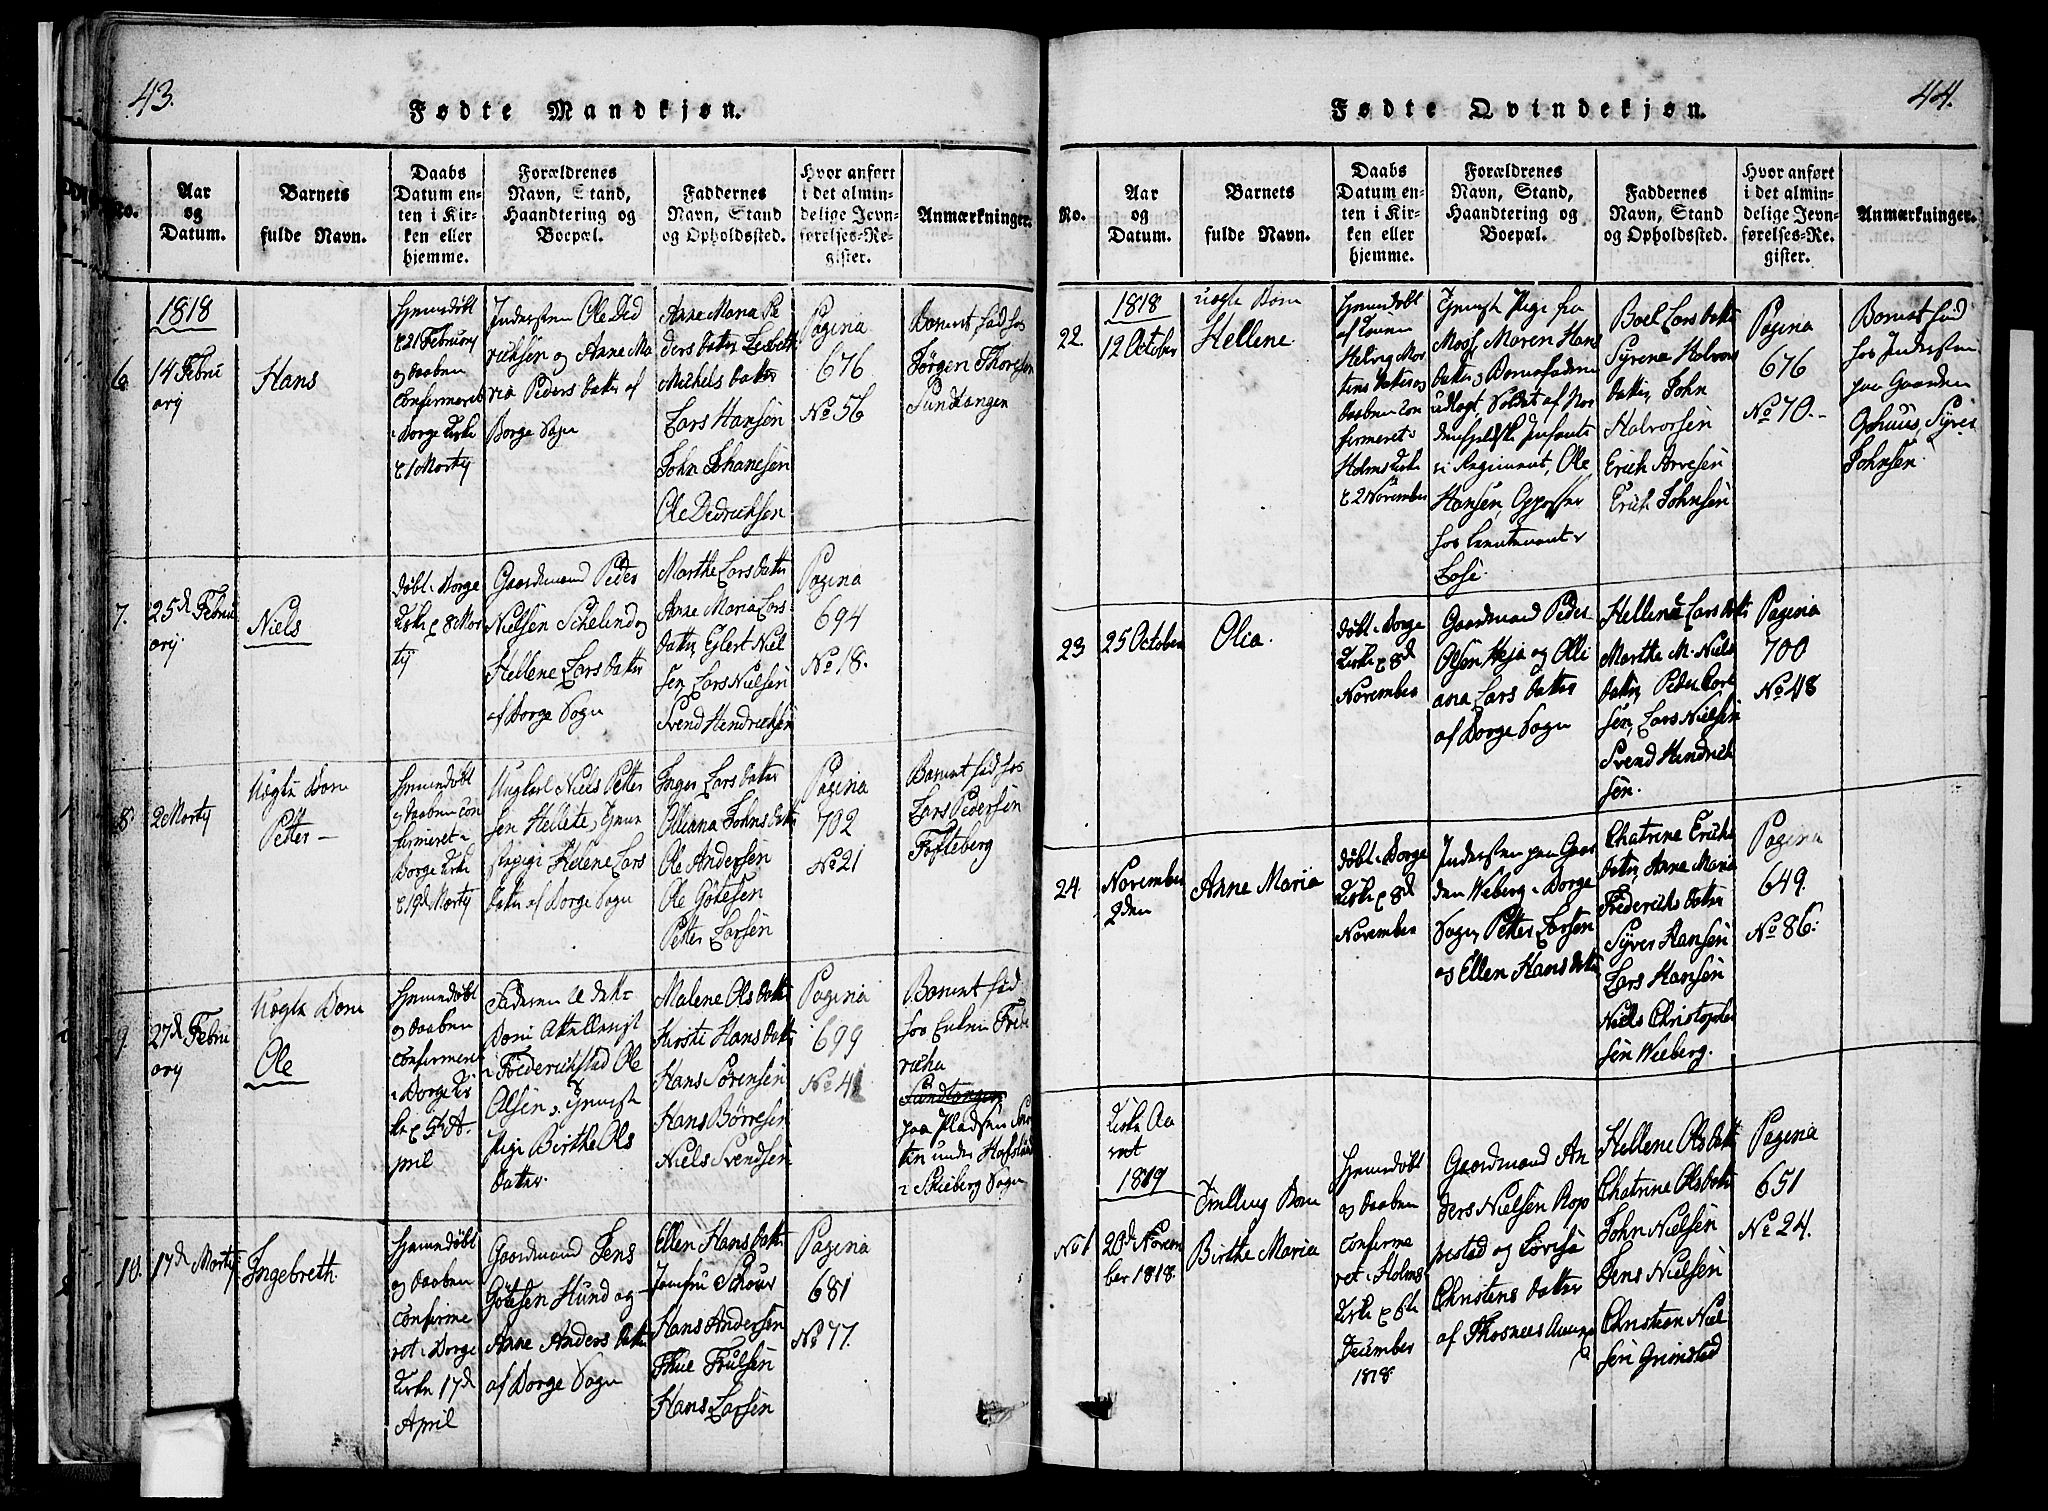 43.
Fødte Mandkjøn.
No.
Aar
og
Datum.
Barnets
fulde Navn.
Daabs
Datum en-
ten i Kir-
ken eller
hjemme.
Forældrenes
Navn, Stand,
Haandtering og
Boepæl.
Faddernes
Navn, Stand
og Opholdssted.
Hvor anført
i det almin-
delige Jevn-
førelses-Re-
gister.
Anmærkninger.
6
1818
14 Febru
arij
Hans
Hjemmedøbt
21 Februarij
og Daaben
Confirmeret
i Borge Kirke
1 Martij
Indersten Ole Did
richsen og Anne Ma
ria Peders datter af
Borge Sogn
Anne Maria Pe
ders datter, Lisbeth
Michels datter
Lars Hansen
John Johanesen
Ole Dedrichsen
Pagina
676
No 56
Barnet fød hos
Jørgen Thoresen
Sundtangen
7.
25d Febru
arij
Niels
døbt i Borge
Kirke 8 Mar
tij
Gaardmand Peder
Nielsen Schelin og
Hellene Lars datter
af Borge Sogn
Marthe Lars datter
Anne Maria Lars
datter, Eylert Niel
sen, Lars Nielsen
Svend Hendrichsen
Pagina
694
No 18.
8
2 Martij
Uægte Barn
Petter
Hjemmedøbt
og Daaben Con
firmeret i
Borge Kirke
19d Martij
Ungkarl Niels Petter
sen Hellete,
Pige Helene Lars
datter af Borge Sogn
Inger Lars datter
Olliana Johns datter
Ole Andersen
Ole Götesen
Petter Larsen
Pagina
702
No 21
Barnet fød hos
Lars Pedersen
Tofteberg
9.
27d Febru
arij
Uægte Barn
Ole
Hjemmedøbt
og Daaben
Confirmeret
i Borge Kir
ke 5te A-
pril
Faderen
i Friderichstad Ole
Olsen,
Pige Birthe Ols
datter.
Malene Ols datter
Kirsti Hans datter
Hans Sörensen
Hans Börresen
Niels Svendsen
Pagina
699
No 41
Barnet fød
hos Enken Fride
richa
Sundtangen
paa Pladsen
under Hafslund
i Skieberg Sogn
10.
17d Martij
Ingebreth.
Hjemmedøbt
og Daaben
Confirme
ret i Borge
Kirke 17d
April
Gaardmand Jens
Götesen Hund og
Anne Anders datter
af Borge Sogn
Ellen Hans datter
Jomfru Schouw
Hans Andersen
Thue Truelsen
Hans Larsen
Pagina
681
No 77.
44.
Fødte Qvindekjøn.
No.
Aar
og
Datum.
Barnets
fulde Navn.
Daabs
Datum en-
ten i Kir-
ken eller
hjemme.
Forældrenes
Navn, Stand,
Haandtering og
Boepæl.
Faddernes
Navn, Stand
og Opholdssted.
Hvor anført
i det almin-
delige Jevn-
førelses-Re-
gister.
Anmærkninger.
22.
1818
12 October
uægte Barn
Hellene
Hjemmedøbt
af Konen
Helvig Mor
tens datter og
Daaben Con
firmeret i
Holms Kirke
2 November
Pige fra
Moss, Maren Hans
datter, Barnefaderen
udlagt, Soldat af Nor
denfieldske Infante
ri Regiment, Ole
Hansen, Oppasser
hos Lieutenant
Lose
Boel Lars datter
Syrena Halvors
datter, John
Halvorsen
Erich Arvesen
Erich Johnsen
Pagina
676
No 70.
Barnet fød
hos Indersten
paa Gaarden
Ophuus, Syver
Johnsen
23
25 October
Olia.
døbt i Borge
Kirke 8d
November
Gaardmand Peder
Olsen Heja og Olli
ana Lars datter
af Borge Sogn
Hellene Lars datter
Marthe M. Niels
datter, Peder Carl
sen, Lars Nielsen
Svend Hendrich
sen.
Pagina
700
No 48
24.
November
2den
Anne Maria
døbt i Borge
Kirke 8d
November
Indersten paa Gaar
den Weberg i Borge
Sogn, Petter Larsen
og Ellen Hans datter
Chatrine Erichs
datter, Anne Maria
Friderichs datter
Syver Hansen
Lars Hansen
Niels Christopher
sen Weeberg.
Pagina
649.
No 86.
Kirke Aa
ret
1819
No 1
20d Novem
ber 1818.
Tvilling Barn
Birthe Maria
Hjemmedøbt
og Daaben
Confirme
ret i Holms
Kirke 6te
December
1818.
Gaardmand An
ders Nielsen Rop
pestad og Lovisa
Christens datter
af Thosnes Annex
Hellene Ols datter
Chatrine Ols datter
John Nielsen
Jens Nielsen
Christian Niel
sen Grimstad
Pagina
651
No 24.